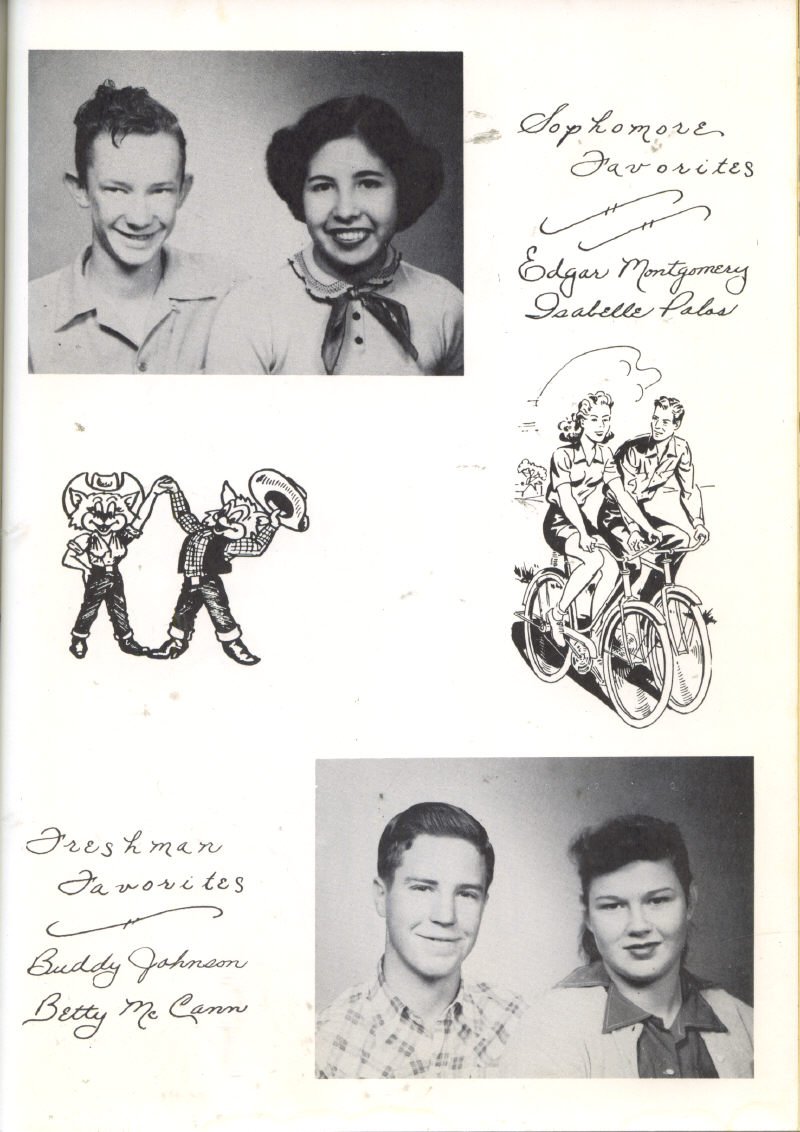 Sophomore
Favorites
Edgar Montgomery
Isabelle Palos
Freshman
Favorites
Buddy Johnson
Betty Mc Cann